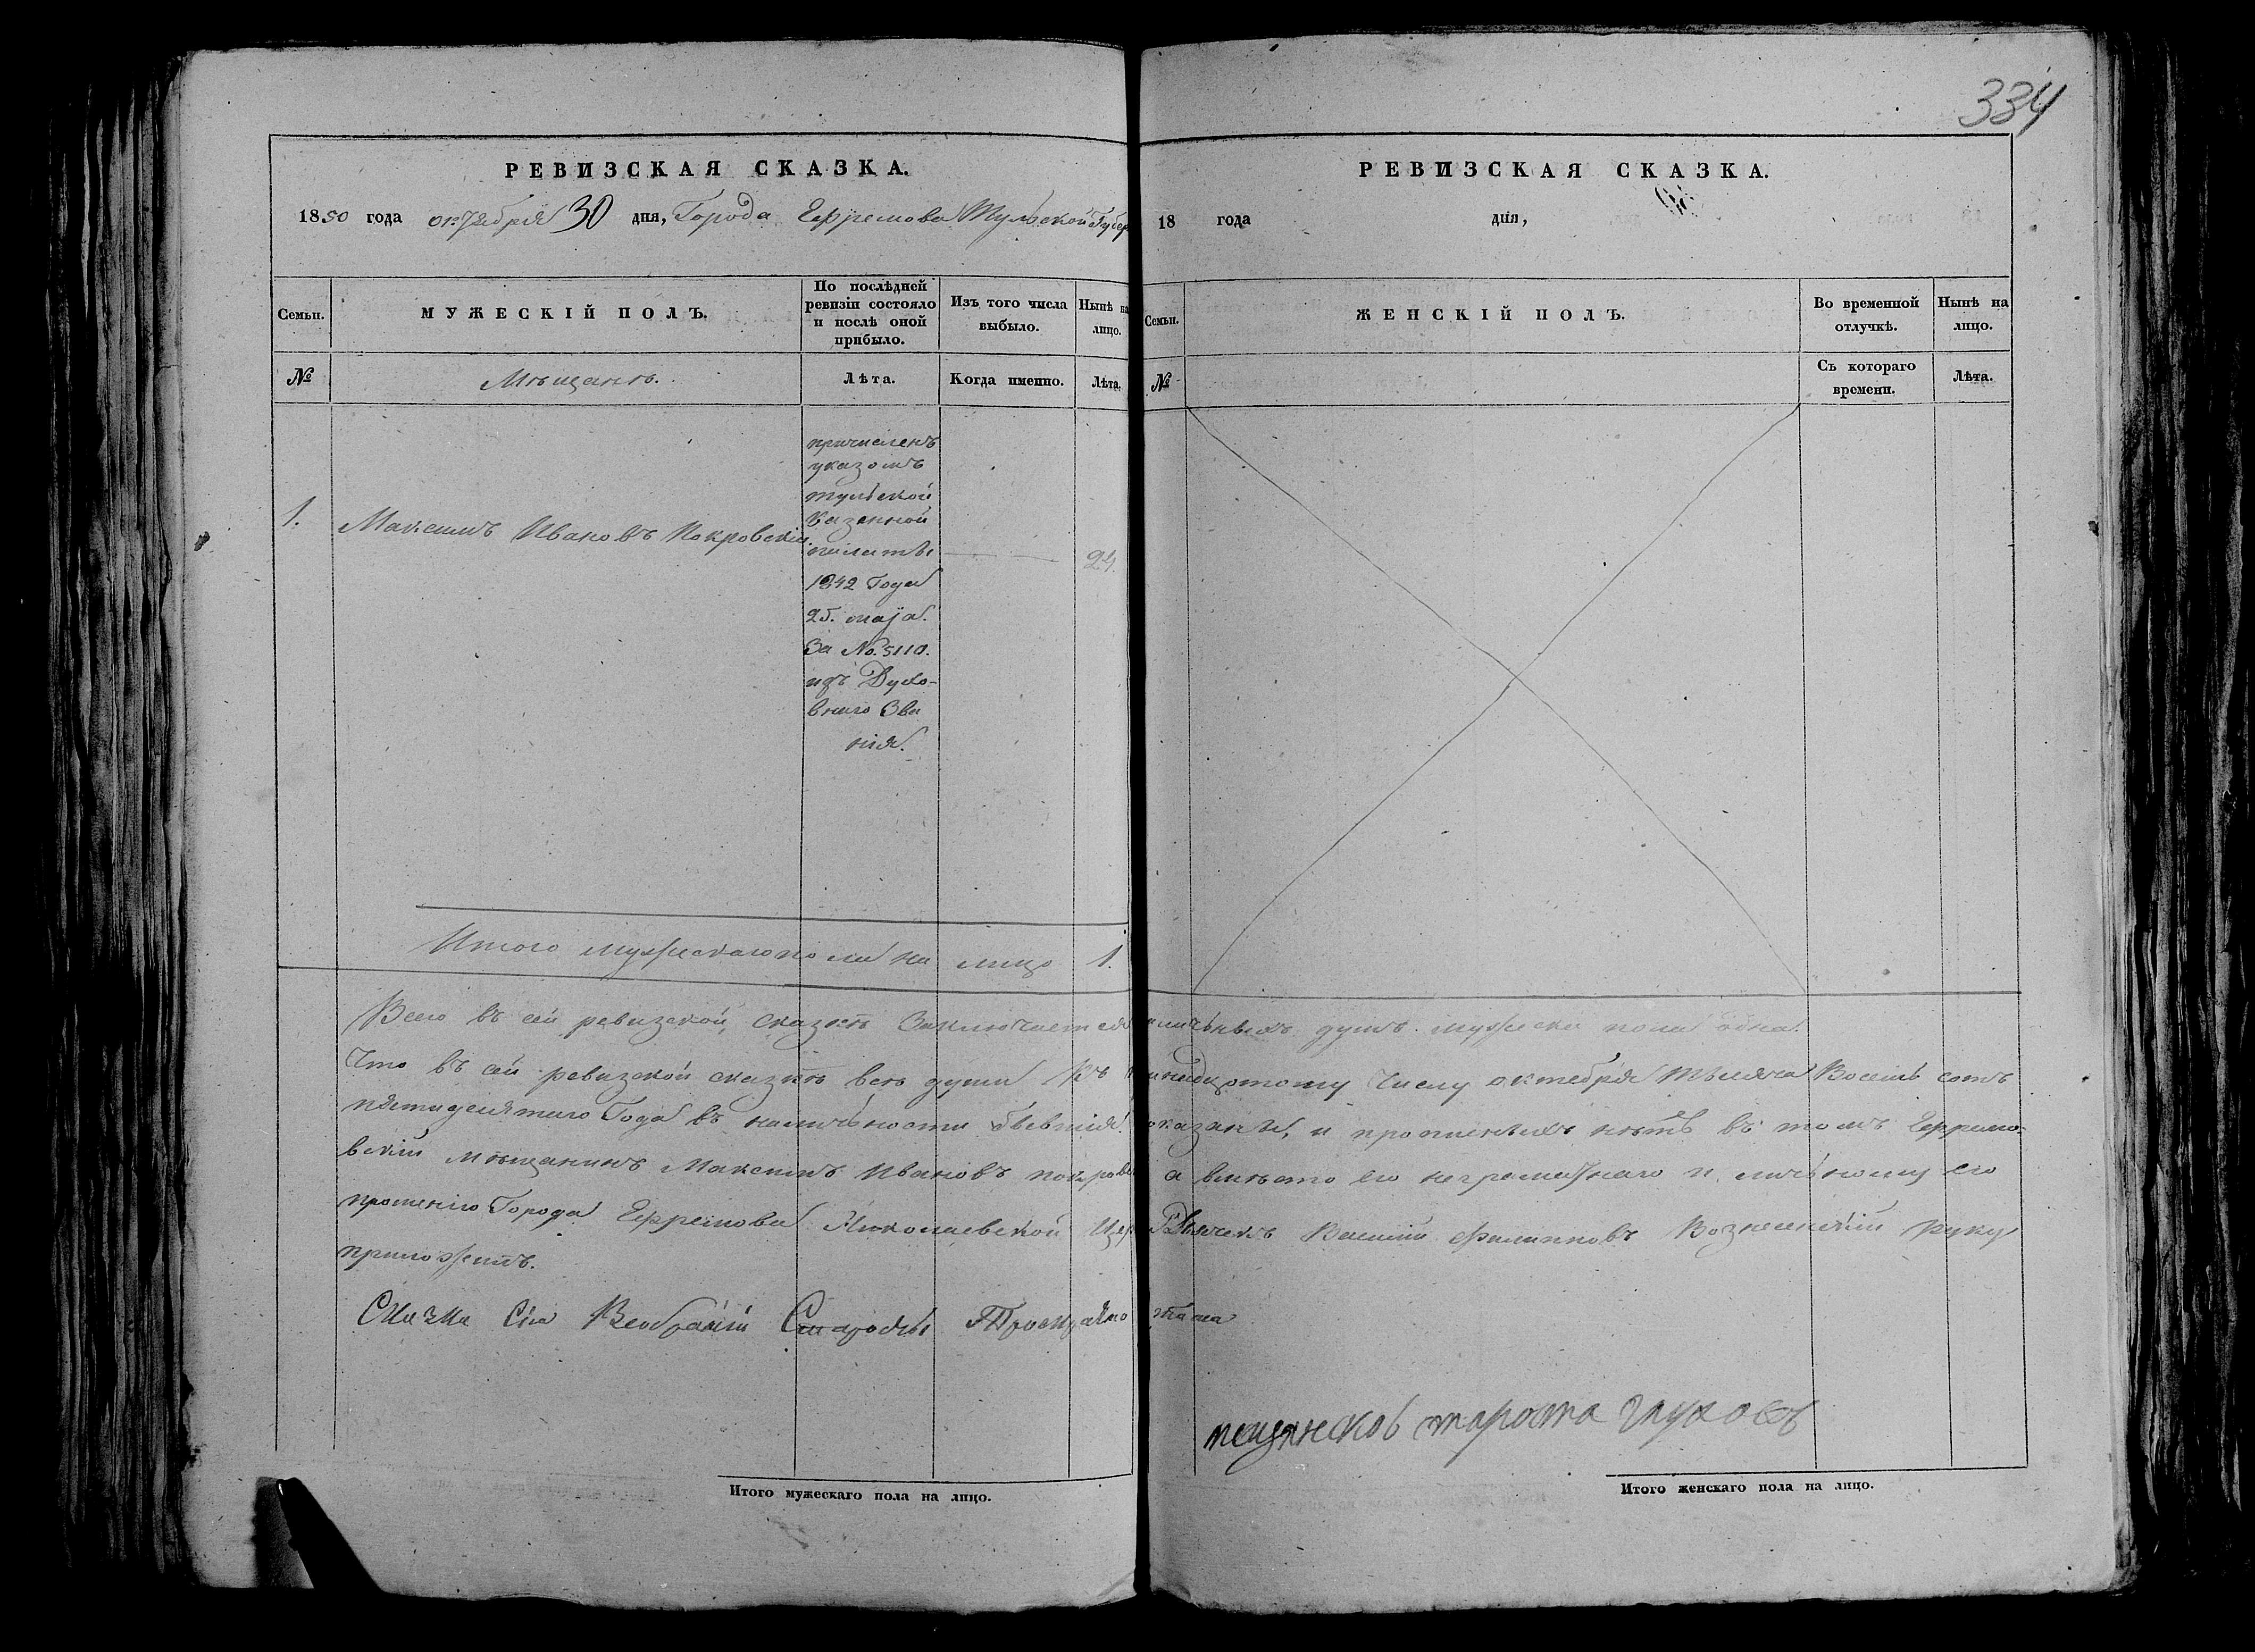 334
РЕВИЗСКАЯ СКАЗКА.
1850 года октября 30 дня, Города Ефремова Тульской Губер
Семьи.
МУЖЕСКІЙ ПОЛЪ.
По послѣдней ревизіи состояло и послѣ оной прибыло.
Изъ того числа выбыло.
Нынѣ на лицо.
№
Мѣщанъ.
Лѣта.
Когда именно.
Лѣта.
1.
Максимъ Ивановъ Покровскій.
причисленъ
указомъ
тульской
казенной
палаты
1842 Года
25. маја.
За No. 5110.
изъ Духо-
внаго Зва
нія.
24.
Итого мужескаго пола на лицо 1.
РЕВИЗСКАЯ СКАЗКА.
18 года дня,
Семьи.
ЖЕНСКІЙ ПОЛЪ.
Во временной отлучкѣ.
Нынѣ на лицо.
№
Съ котораго времени.
Лѣта.
Всего въ сей ревизской сказкѣ Заключается наличныхъ душъ мужеска пола одна.
Что въ сей ревизской сказкѣ всѣ души Къ тому Числу октебря Тысяча Восемь сотъ
пятидесятаго Года въ наличьности бывшія показаны, и прописныхъ нѣтъ въ томъ Ефремо-
вскій мѣщанинъ Максимъ Ивановъ покров а вмѣсто его неграматнаго и личьному его
прошенію Города Ефремова Николаевской Цер Дьячекъ Василій Филипповъ Вознесенскій руку
приложилъ.
Скаска Сия
мещанской староста глуховъ
Итого мужескаго пола на лицо.
Итого женскаго пола на лицо.